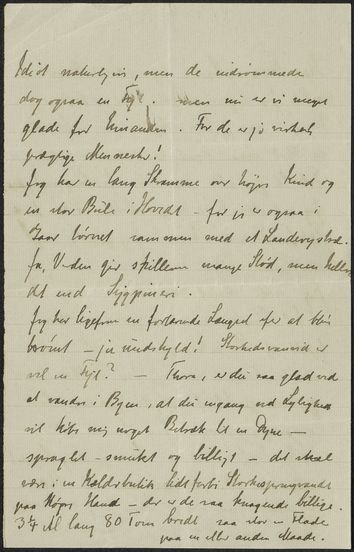 Idiot naturligvis, men de indrømmede
dog ogsaa en Fejl. men nu er vi meget
glade for hinanden. For de er jo virkelig
prægtige Mennesker!
Jeg har en lang Skramme over højre Kind og
en stor Bule i Hovedet – for jeg er ogsaa i
Gaar tørnet sammen med et
Ja, Verden gir Skillem mange Stød, men hellere
det end
Jeg har ligefrem en fortærende Længsel efter at blive
berømt – ja undskyld! Storhedsvanvid er
vel en Fejl? – Thora, er du saa glad ved
at vandre i Byen, at du engang ved Lejlighed
vil købe mig noget Betræk til en Dyne –
spraglet – smukt og billigt – det skal
være i en Kælderbutik lidt forbi Storkespringvandet
paa Højre Haand – der er de saa knagende billige.
3¼ Al lang 80 Tom bredt saa stor en Flade
paa en eller anden Maade.